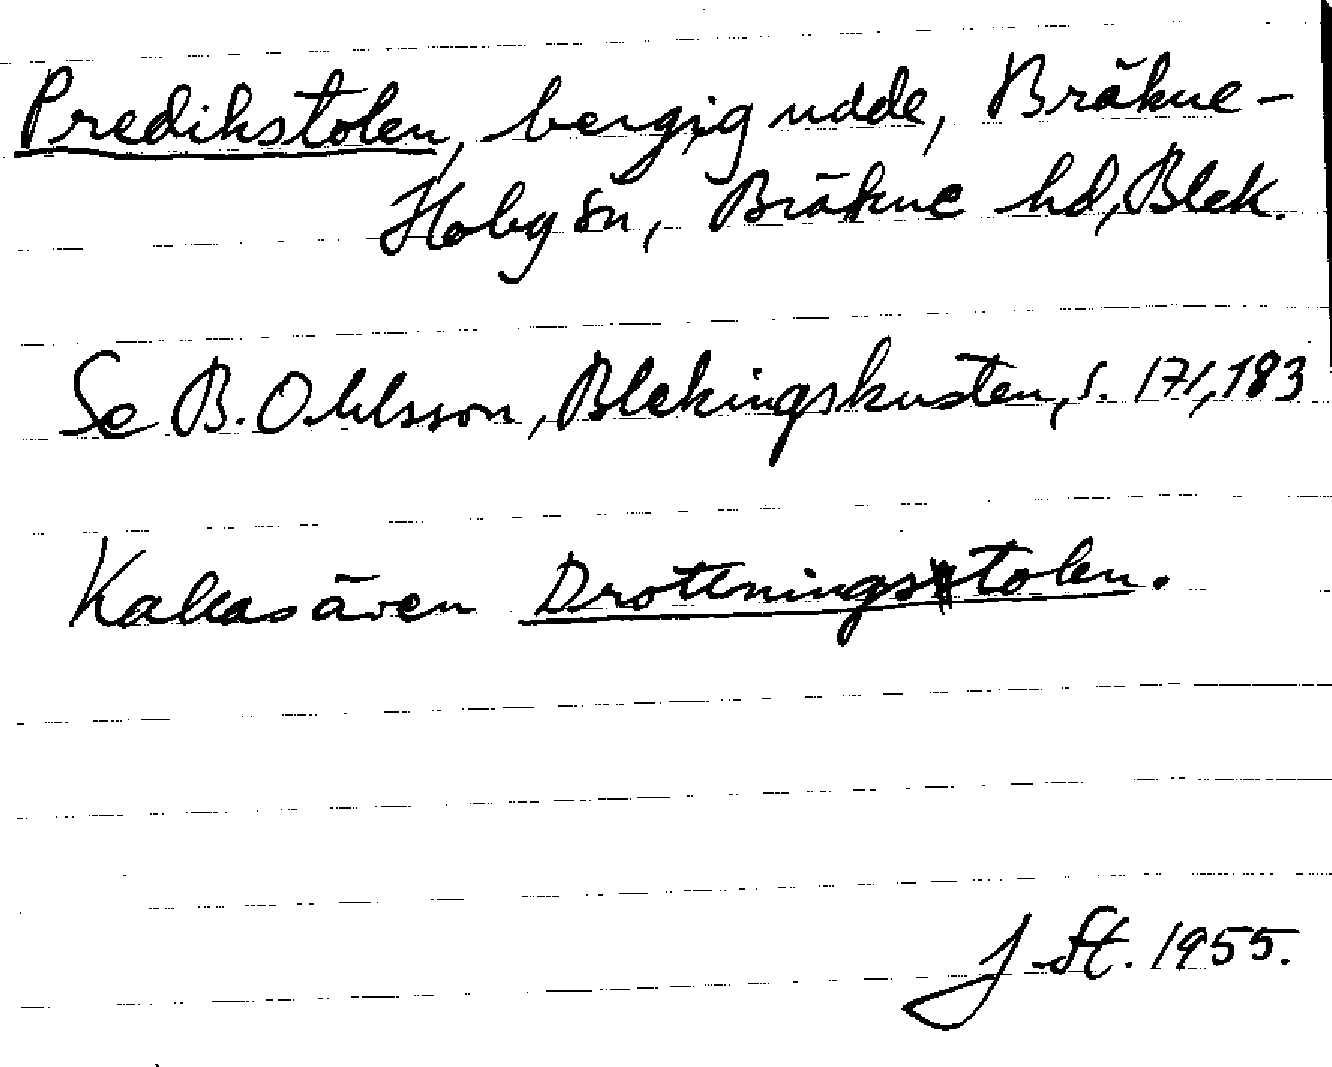 Predikstolen, bergig udde, Bräkne-
Hoby sn, Bräkne hd, Blek.
Se B. Ohlsson, Blekingskusten, s. 171, 183
Kallas även Drottningstolen.
J. St. 1955.